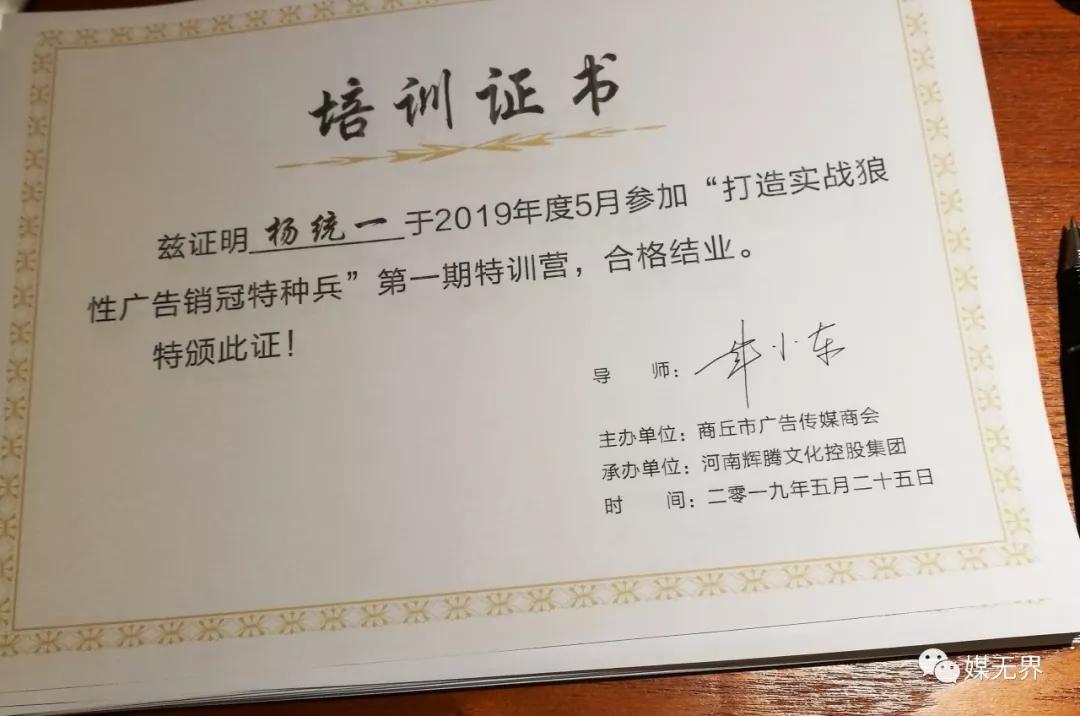 培训证书
兹证明 杨统一 于2019年度5月参加“打造实战狼
性广告销冠特种兵”第一期特训营，合格结业。
特颁此证！
导　　师：牟小东
主办单位：商丘市广告传媒商会
承办单位：河南辉腾文化控股集团
时　　间：二零一九年五月二十五日
媒无界